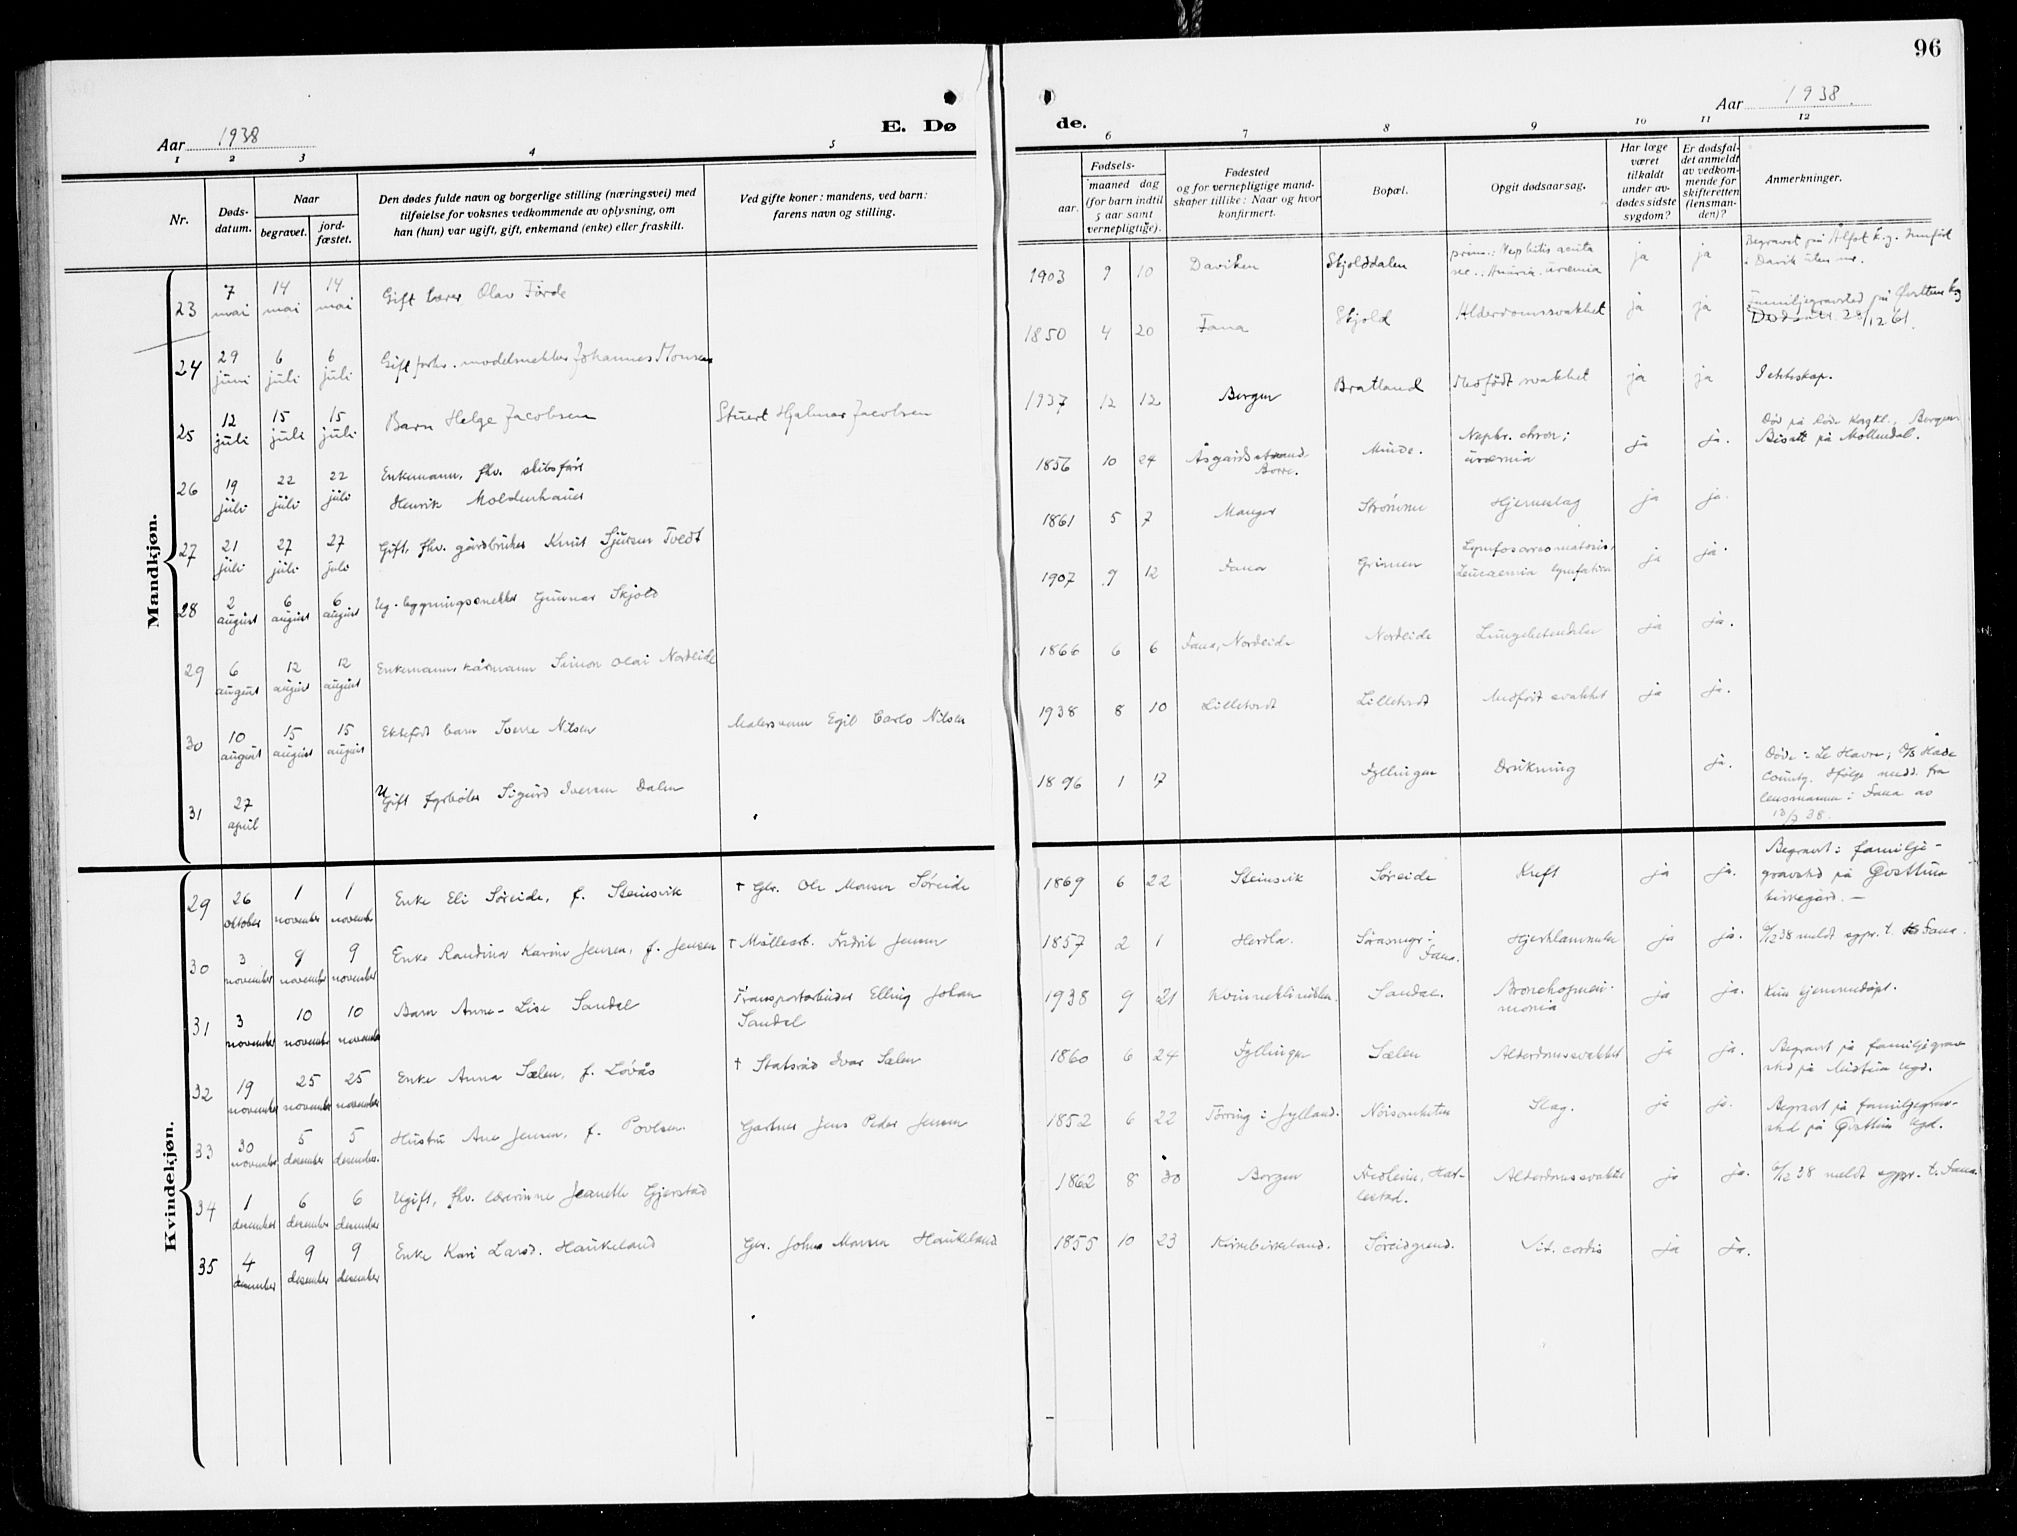 96
Aar 1938
E. Dø
de.
Aar 1938.
1 2 3 4 5 6 7 8 9 10 11 12
Nr.
Døds-
datum.
Naar
begravet.
jord-
fæstet.
Den dødes fulde navn og borgerlige stilling (næringsvei) med
tilføielse for voksnes vedkommende av oplysning, om
han (hun) var ugift, gift, enkemand (enke) eller fraskilt.
Ved gifte koner: mandens, ved barn:
farens navn og stilling.
Fødsels-
aar.
maaned dag
(for barn indtil
5 aar samt
vernepligtige).
Fødested
og for vernepligtige mand-
skaper tillike: Naar og hvor
konfirmert.
Bopæl.
Opgit dødsaarsag.
Har læge
været
tilkaldt
under av-
dødes sidste
sygdom?
Er dødsfal-
det anmeldt
av vedkom-
mende for
skifteretten
(lensman-
den)?
Anmerkninger.
Mandkjøn.
23 7 mai 14 mai 14 mai Gift lærer Olav Førde 1903 9 10 Daviken Skjolddalen prim.: Nephritis acuta
sec.: Anuria. uræmia ja ja Begravet på Ålfot k.g. Innført
i Davik uten nr.
24 29 juni 6 juli 6 juli Gift forhv. modelsnekker Johannes Monsen 1850 4 20 Fana Skjold Alderdomssvakhet ja ja Familjegravsted på Øvsttun kg
28/12 61.
25 12 juli 15 juli 15 juli Barn Helge Jacobsen Stuert Hjalmar Jacobsen 1937 12 12 Bergen Bratland Medfødt svakhet ja ja I ekteskap.
26 19 juli 22 juli 22 juli Enkemann, fhv. skibsfører
Henrik Moldenhauer 1856 10 24 Åsgårdstrand
Borre. Minde. Nephr. chron;
uræmia ja ja. Død på Røde Kors kl., Bergen
Bisatt på Møllendal.
27 21 juli 27 juli 27 juli Gift, fhv. gårdbruker Knut Sjursen Tvedt 1861 5 7 Manger Strømme Hjerneslag ja ja.
28 2 august 6 august 6 august Ug. bygningssnekker Gunnar Skjold 1907 9 12 Fana Grimen Lymfosarcomatosis,
Leucaemia lymfatica ja ja.
29 6 august 12 august 12 august Enkemann kårmann Simon Olai Nordeide 1866 6 6 Fana, Nordeide Nordeide Lungebetendelse ja ja.
30 10 august 15 august 15 august Ektefødt barn Sverre Nilsen Malersvenn Egil Carlo Nilsen 1938 8 10 Lilletvedt Lilletvedt Medfødt svakhet ja ja.
31 27 april Ugift fyrbøter Sigurd Iversen Dalen 1896 1 17 Fyllingen Drukning ja. Døde i Le Havre, D/S
County. Ifølge medd. fra
lensmannen i Fana av
13/7 38.
Kvindekjøn.
29 26 oktober 1 november 1 november Enke Eli Søreide, f. Steinsvik † Gbr. Ole Monsen Søreide 1869 6 22 Steinsvik Søreide Kreft ja ja. Begravet i familje-
gravsted på Øvsttun
kirkegård. —
30 3 november 9 november 9 november Enke Randina Karine Jensen, f. Jensen † Møllearb. Fredrik Jensen 1857 2 1 Herdla. Søråsmyr i
Fana. Hjerklammelse ja ja. 6/12 38 meldt sgpr. t. Fana.
31 3 november 10 november 10 november Barn Anne-Lise Sandal Transportarbeider Elling Johan
Sandal 1938 9 21 Kvinneklinikken. Sandal. Bronchopneu-
monia ja ja. Kun hjemmedøpt.
32 19 november 25 november 25 november Enke Anna Sælen, f. Løvås † Statsråd Ivar Sælen 1860 6 24 Fyllingen Sælen Alderdomssvakhet ja ja. Begravet på familjegrav-
sted på Midttun kgd.
33 30 november 5 desember 5 desember. Hustru Ane Jensen, f. Povlsen Gartner Jens Peder Jensen 1852 6 22 Tørring i Jylland. Nøisomheten Slag. ja ja. Begravet på familjegrav-
sted på Øvsttun kgd.
34 1 desember 6 desember 6 desember Ugift, fhv. lærerinne Jeanette Gjerstad 1862 8 30 Bergen Fredheim, Hat-
lestad. Alderdomssvakhet ja ja. 6/12 38 meldt sgpr. t. Fana.
35 4 desember 9 desember 9 desember Enke Kari Larsd. Haukeland Gbr. Johs Monsen Haukeland 1855 10 23 Kirkebirkeland. Søreidgrend. Vit. cordis ja ja.